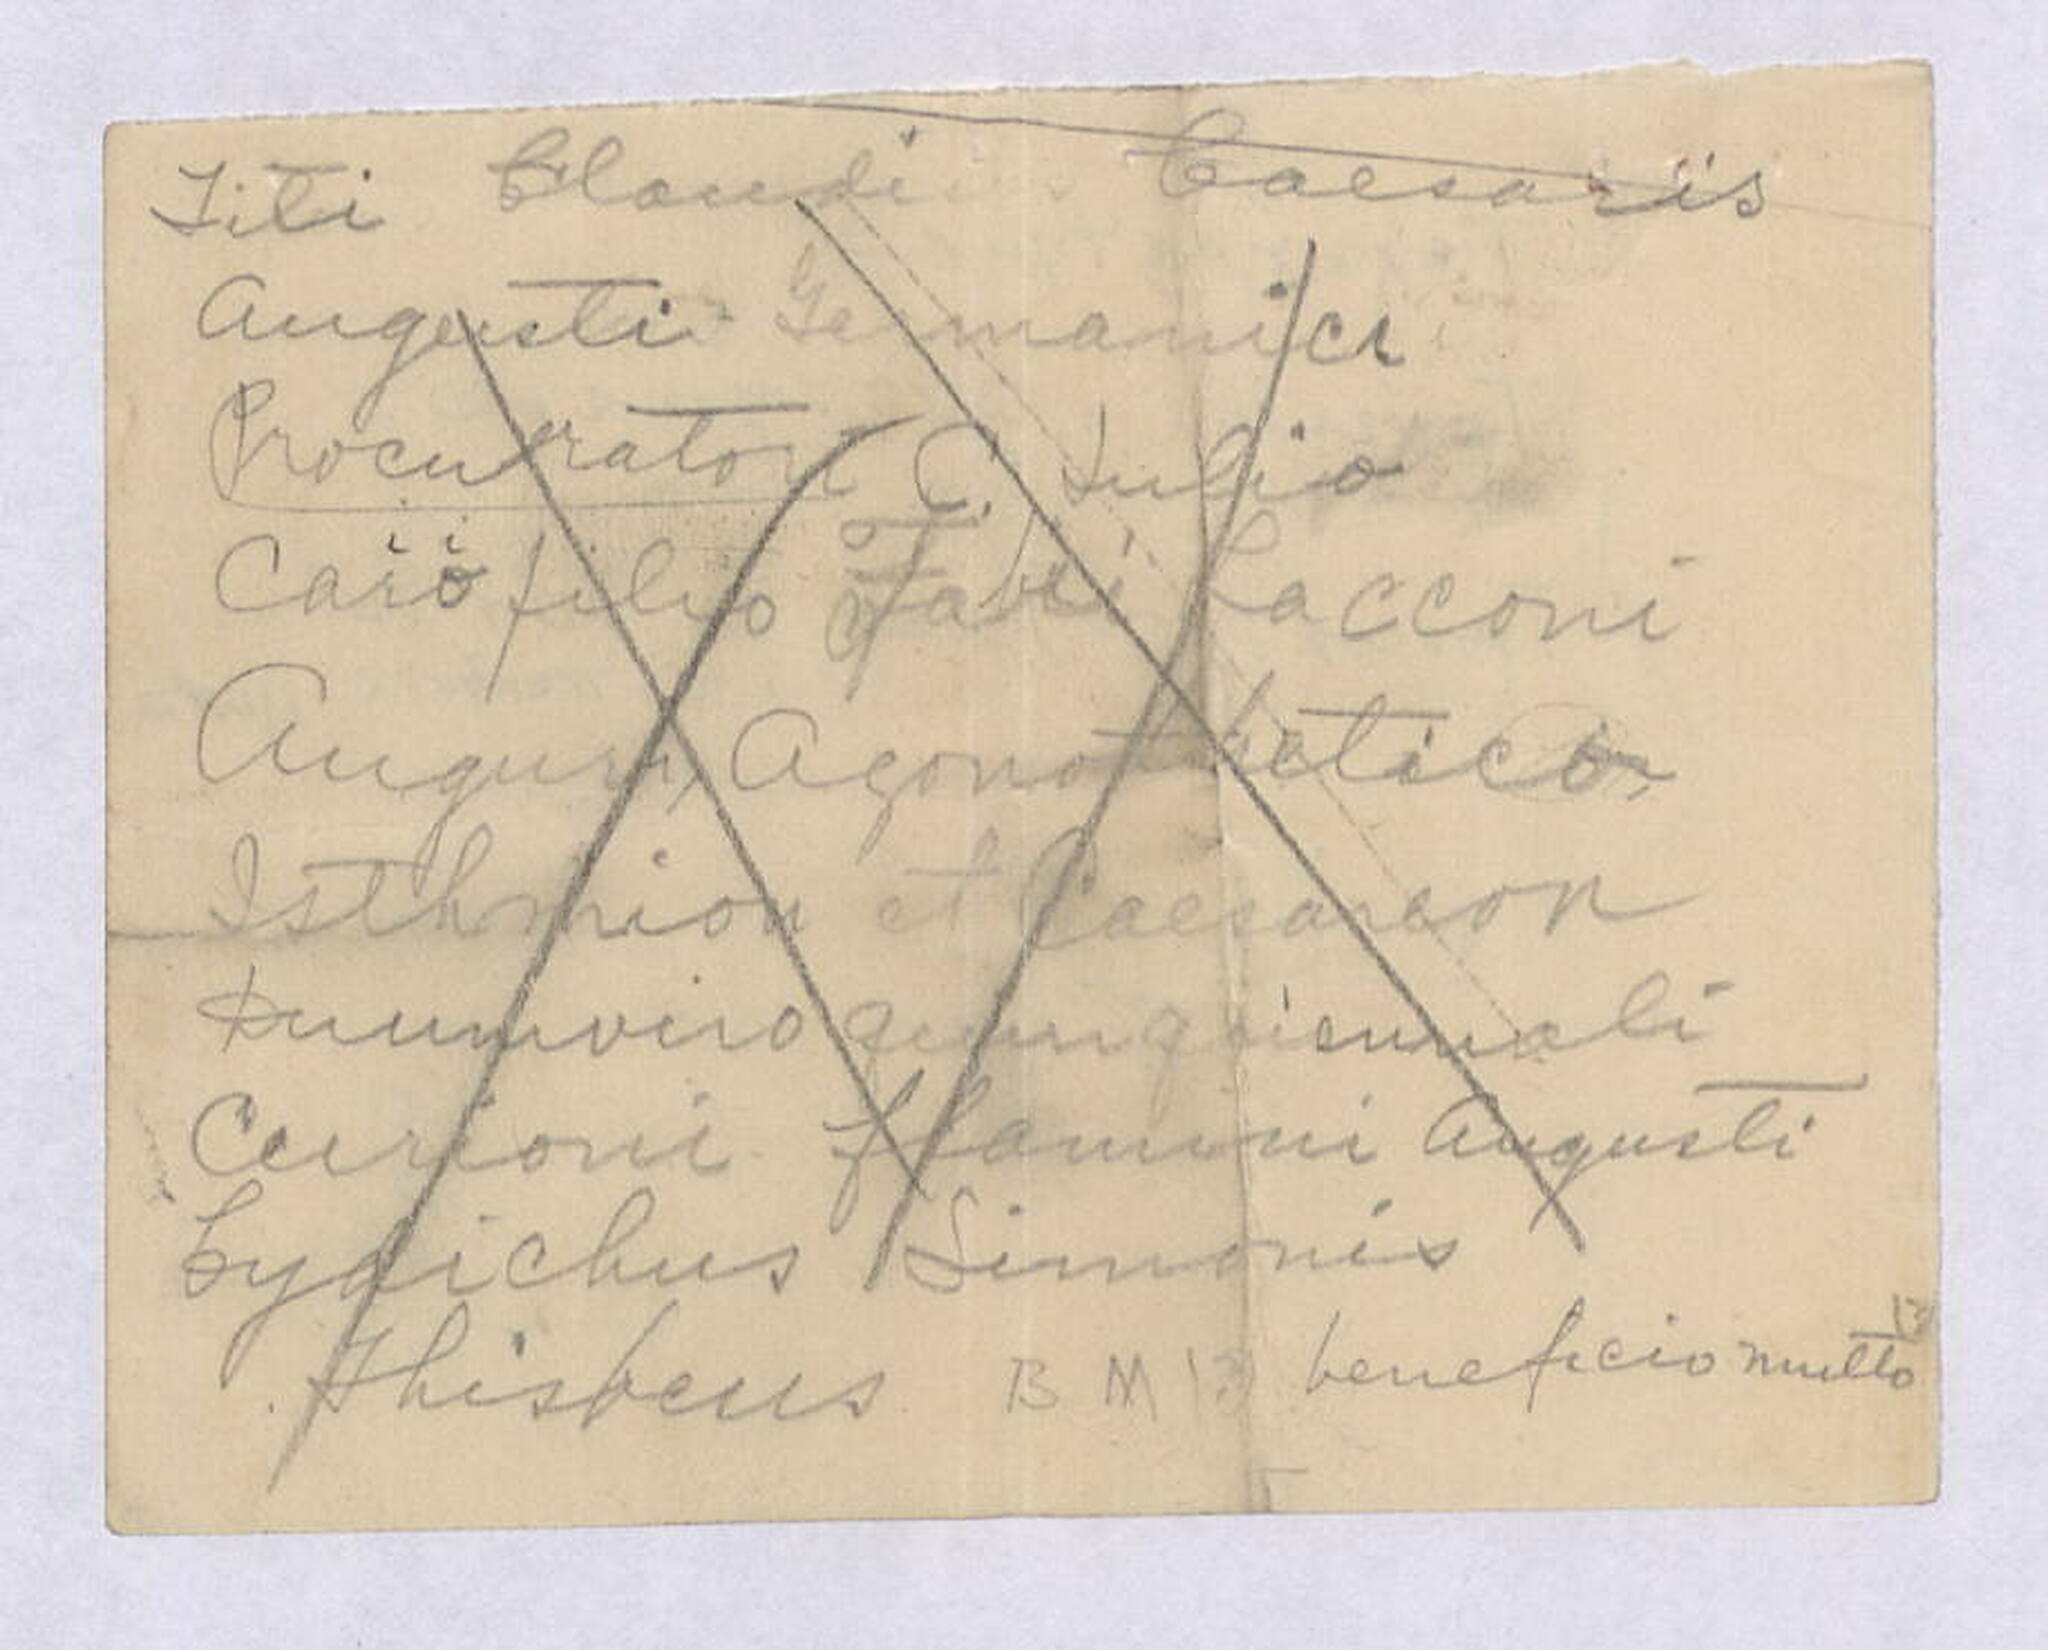 Titi Claudi Caesaris
Augusti Germanici
Procuratori C. Iulio
Caiio filio Fabi Lacconi
Auguri, Agonothetico
Isthmion et Caesareon
Duumviro quinquiennali
Curioni flamini Augusti
Lydichus Simonis
Thisbeus B M 13 beneficio multo